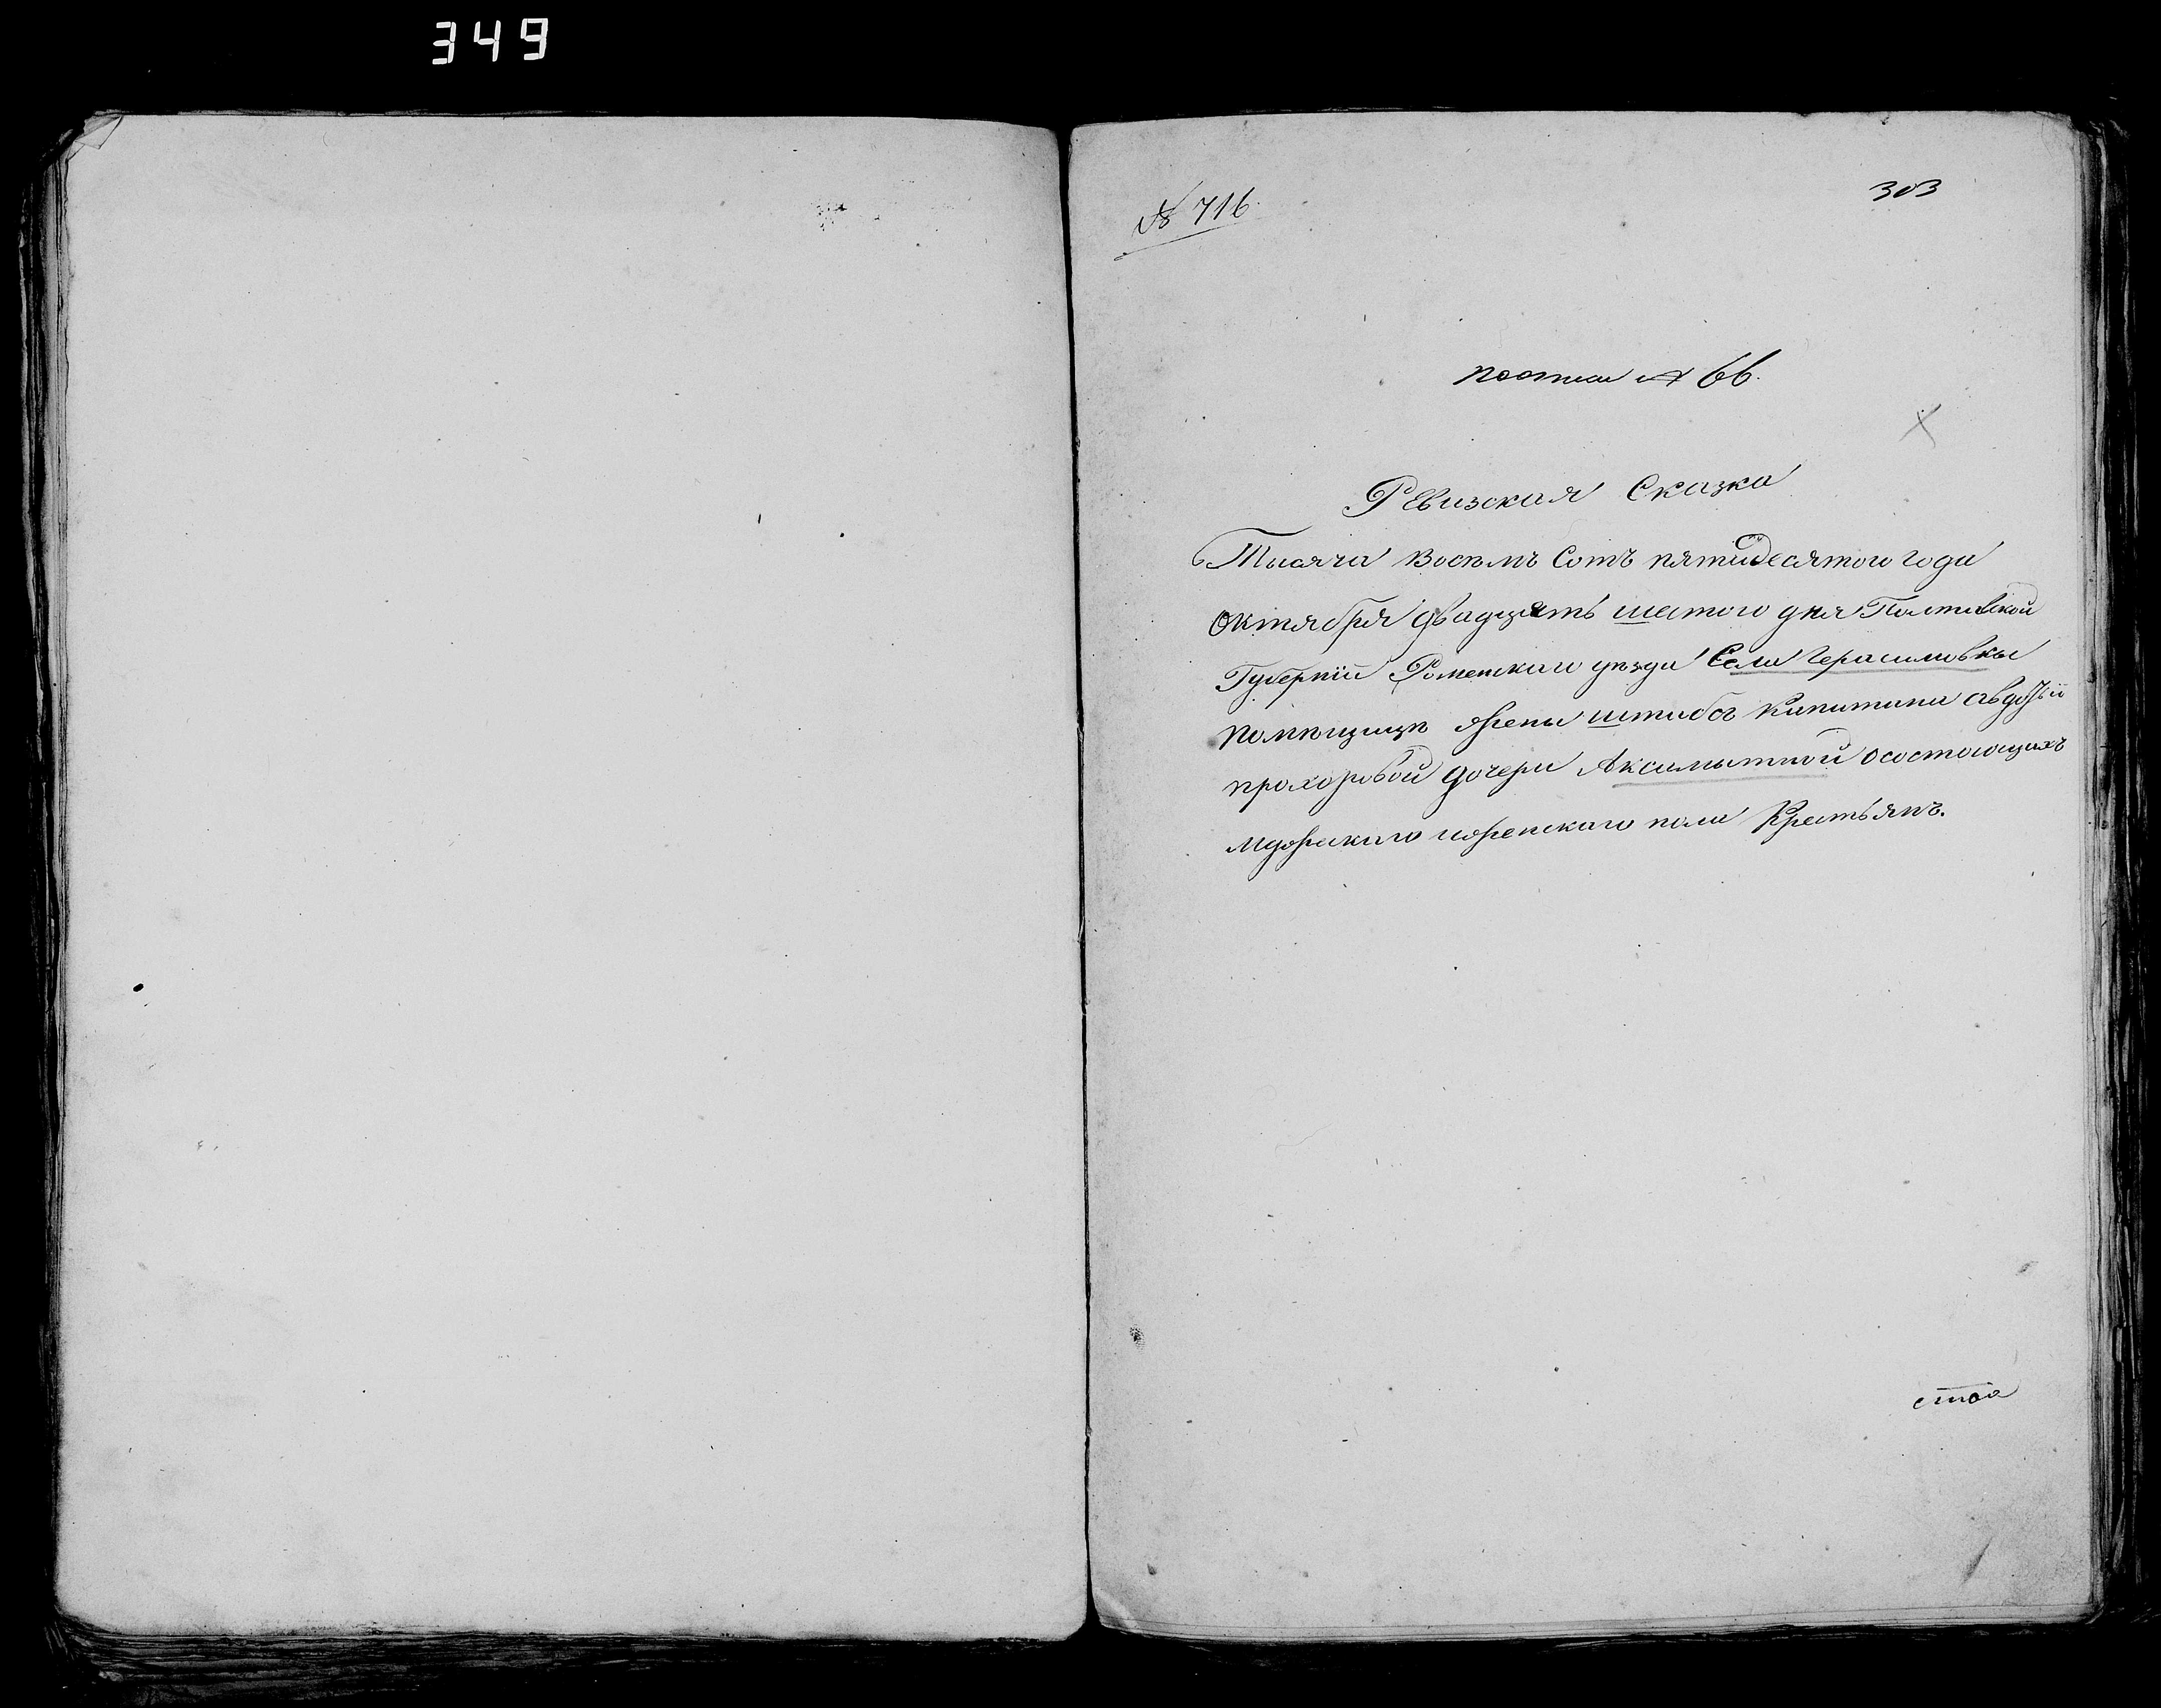 349
№ 716.
303
№ 66.
Ревизская Сказка
Тысяча Восемъ Сотъ пятидесятого года
Октября двадцять шестого дня Полтавской
Губерніи Роменского уезда Села Герасимовки
помещице жены штабсъ Капитана авдотьи
прохоровой дочери Аксамытной осостоющихъ
мужескаго иженскаго пола Крестьянъ.